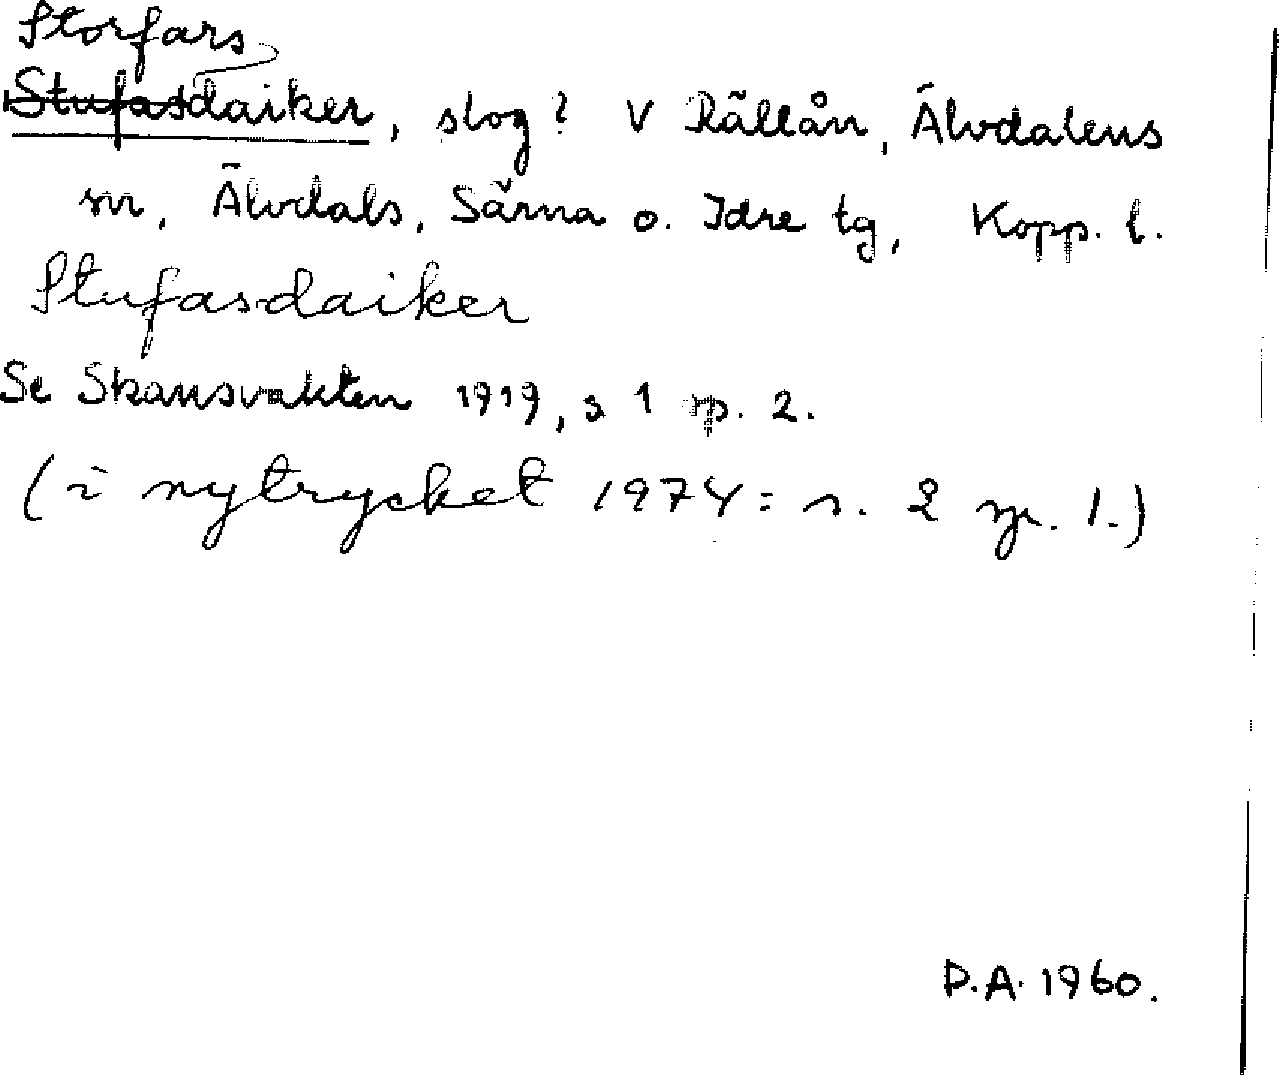 Storfars
Stufasdaiker, slog? V Rällån, Älvdalens
sn, Älvdals, Särna o. Idre tg, Kopp. l.
Stufasdaiker
Se Skansvakten 1919, s 1 sp. 2.
(i nytrycket 1974: s. 2 sp. 1.)
D.A. 1960.